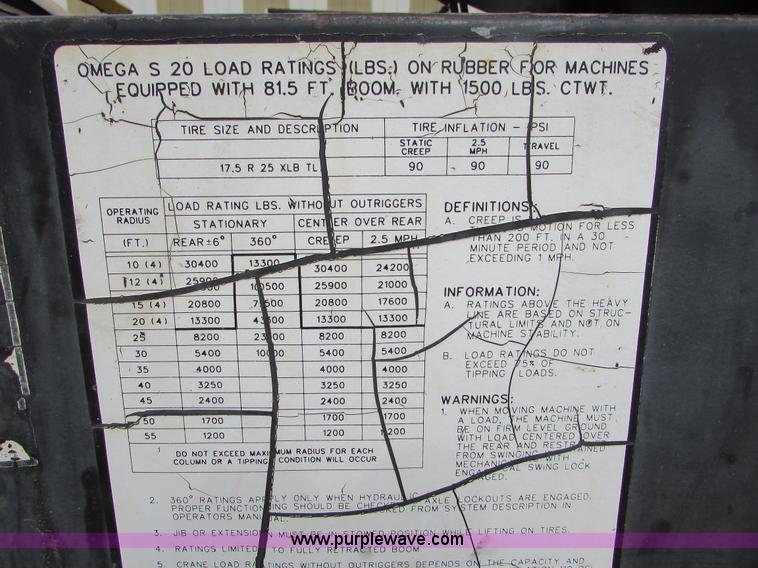 OMEGA S 20 LOAD RATINGS (LBS.) ON RUBBER FOR MACHINES
EQUIPPED WITH 81.5 FT. BOOM. WITH 1500 LBS. CTWT.
TIRE SIZE AND DESCRIPTION TIRE INFLATION - PSI
STATIC CREEP 2.5 MPH TRAVEL
17.5 R 25 XLB TL 90 90 90
OPERATING RADIUS (FT.) LOAD RATING LBS. WITHOUT OUTRIGGERS
STATIONARY CENTER OVER REAR
REAR ±6° 360° CREEP 2.5 MPH
10 (4) 30400 13300 30400 24200
12 (4) 25900 10500 25900 21000
15 (4) 20800 20800 17600
20 (4) 13300 13300 13300
25 8200 8200 8200
30 5400 5400 5400
35 4000 4000 4000
40 3250 3250 3250
45 2400 2400 2400
50 1700 1700 1700
55 1200 1200 1200
DO NOT EXCEED MAXIMUM RADIUS FOR EACH
COLUMN OR A TIPPING CONDITION WILL OCCUR
DEFINITIONS:
A. CREEP IS
MOTION FOR LESS
THAN 200 FT. IN A 30
MINUTE PERIOD AND NOT
EXCEEDING 1 MPH.
INFORMATION:
A. RATINGS ABOVE THE HEAVY
LINE ARE BASED ON STRUC-
TURAL LIMITS AND NOT ON
MACHINE STABILITY.
B. LOAD RATINGS DO NOT
EXCEED 75% OF
TIPPING LOADS.
WARNINGS:
1. WHEN MOVING MACHINE WITH
A LOAD, THE MACHINE MUST
BE ON FIRM LEVEL GROUND
WITH LOAD CENTERED OVER
THE REAR AND RESTRAINED
FROM SWINGING WITH
MECHANICAL SWING LOCK
ENGAGED.
2. 360° RATINGS APPLY ONLY WHEN HYDRAULIC AXLE LOCKOUTS ARE ENGAGED.
PROPER FUNCTIONING SHOULD BE CHECKED FROM SYSTEM DESCRIPTION IN
OPERATORS MANUAL.
3. JIB OR EXTENSION MUST BE IN STOWED POSITION WHILE LIFTING ON TIRES.
4. RATINGS LIMITED TO FULLY RETRACTED BOOM.
5. CRANE LOAD RATINGS WITHOUT OUTRIGGERS DEPENDS ON THE CAPACITY AND
www.purplewave.com